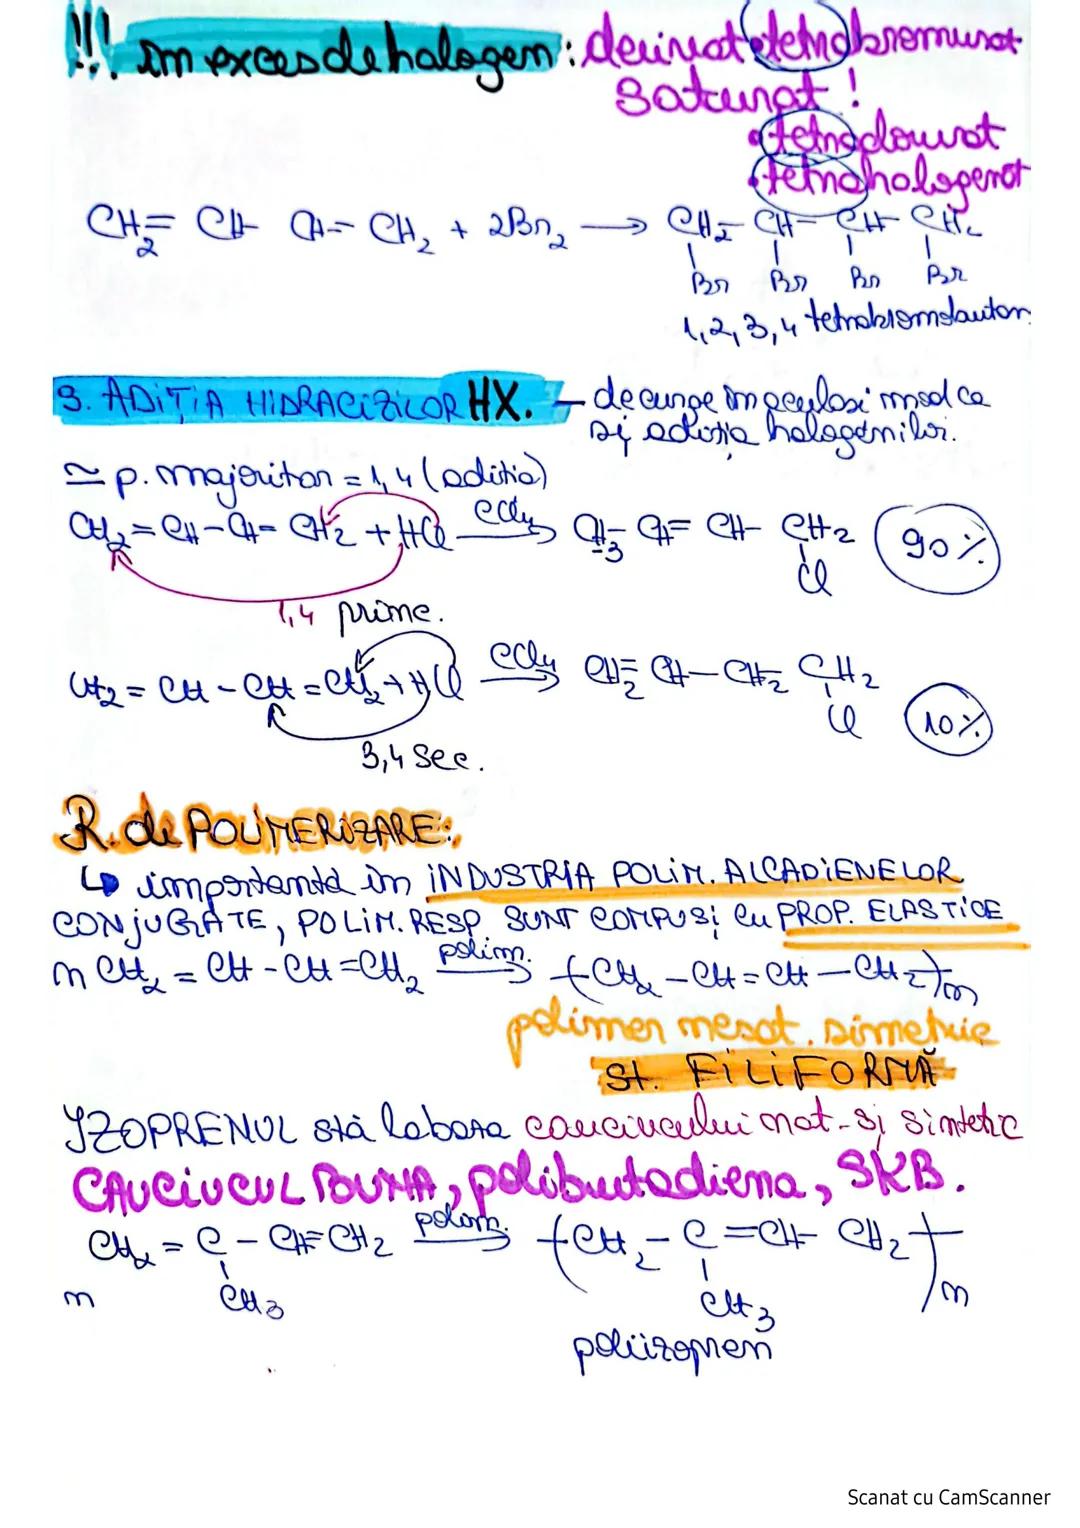 !!! în exces de halogen: derivat tetrabromurat
saturat!
• tetraclorurat
• tetrahalogenat
CH2= CH- CH= CH2 + 2Br2 → CH2- CH- CH- CH2
Br Br Br Br
1,2,3,4 tetrabromobutan
3. ADIȚIA HIDRACIZILOR HX. – decurge în același mod ca
și adiția halogenilor.
≃ p. majoritar = 1,4 (adiția)
CH2=CH-CH=CH2 + HCl CCl4→ CH3- CH= CH- CH2 90%
Cl
1,4 princ.
CH2 = CH - CH = CH2 + HCl CCl4→ CH2= CH-CH2 CH2
Cl 10%
3,4 sec.
R. de POLIMERIZARE:
↳ importantă în INDUSTRIA POLIM. ALCADIENELOR
CONJUGATE, POLIM. RESP. SUNT COMPUȘI cu PROP. ELASTICE
n CH2 = CH - CH = CH2 polim.→ (CH2 - CH = CH - CH2)n
polimer nesat. simetric
st. FILIFORMĂ
IZOPRENUL stă la baza cauciucului nat. și sintetic
CAUCIUCUL BUNA, polibutadiena, SKB.
CH2 = C - CH=CH2 polim.→ (CH2 - C = CH- CH2)n
n CH3 CH3
poliizopren
Scanat cu CamScanner